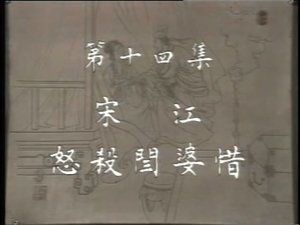 第十四集
宋 江
怒殺閻婆惜